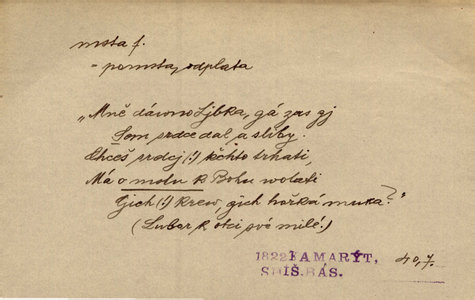 msta f.
= pomsta, odplata
„Mně dávno Ljbka, gá zas gj
Sem srdce dal, a sliby.
Chceš srdcj (:) kchto trhati,
Má o mstu k Bohu wolati
Gich (:) krew, gich hořká muka?"
(Lubor k otci své milé.)
1822 KAMARÝT, 40,7.
SMÍŠ.BÁS.